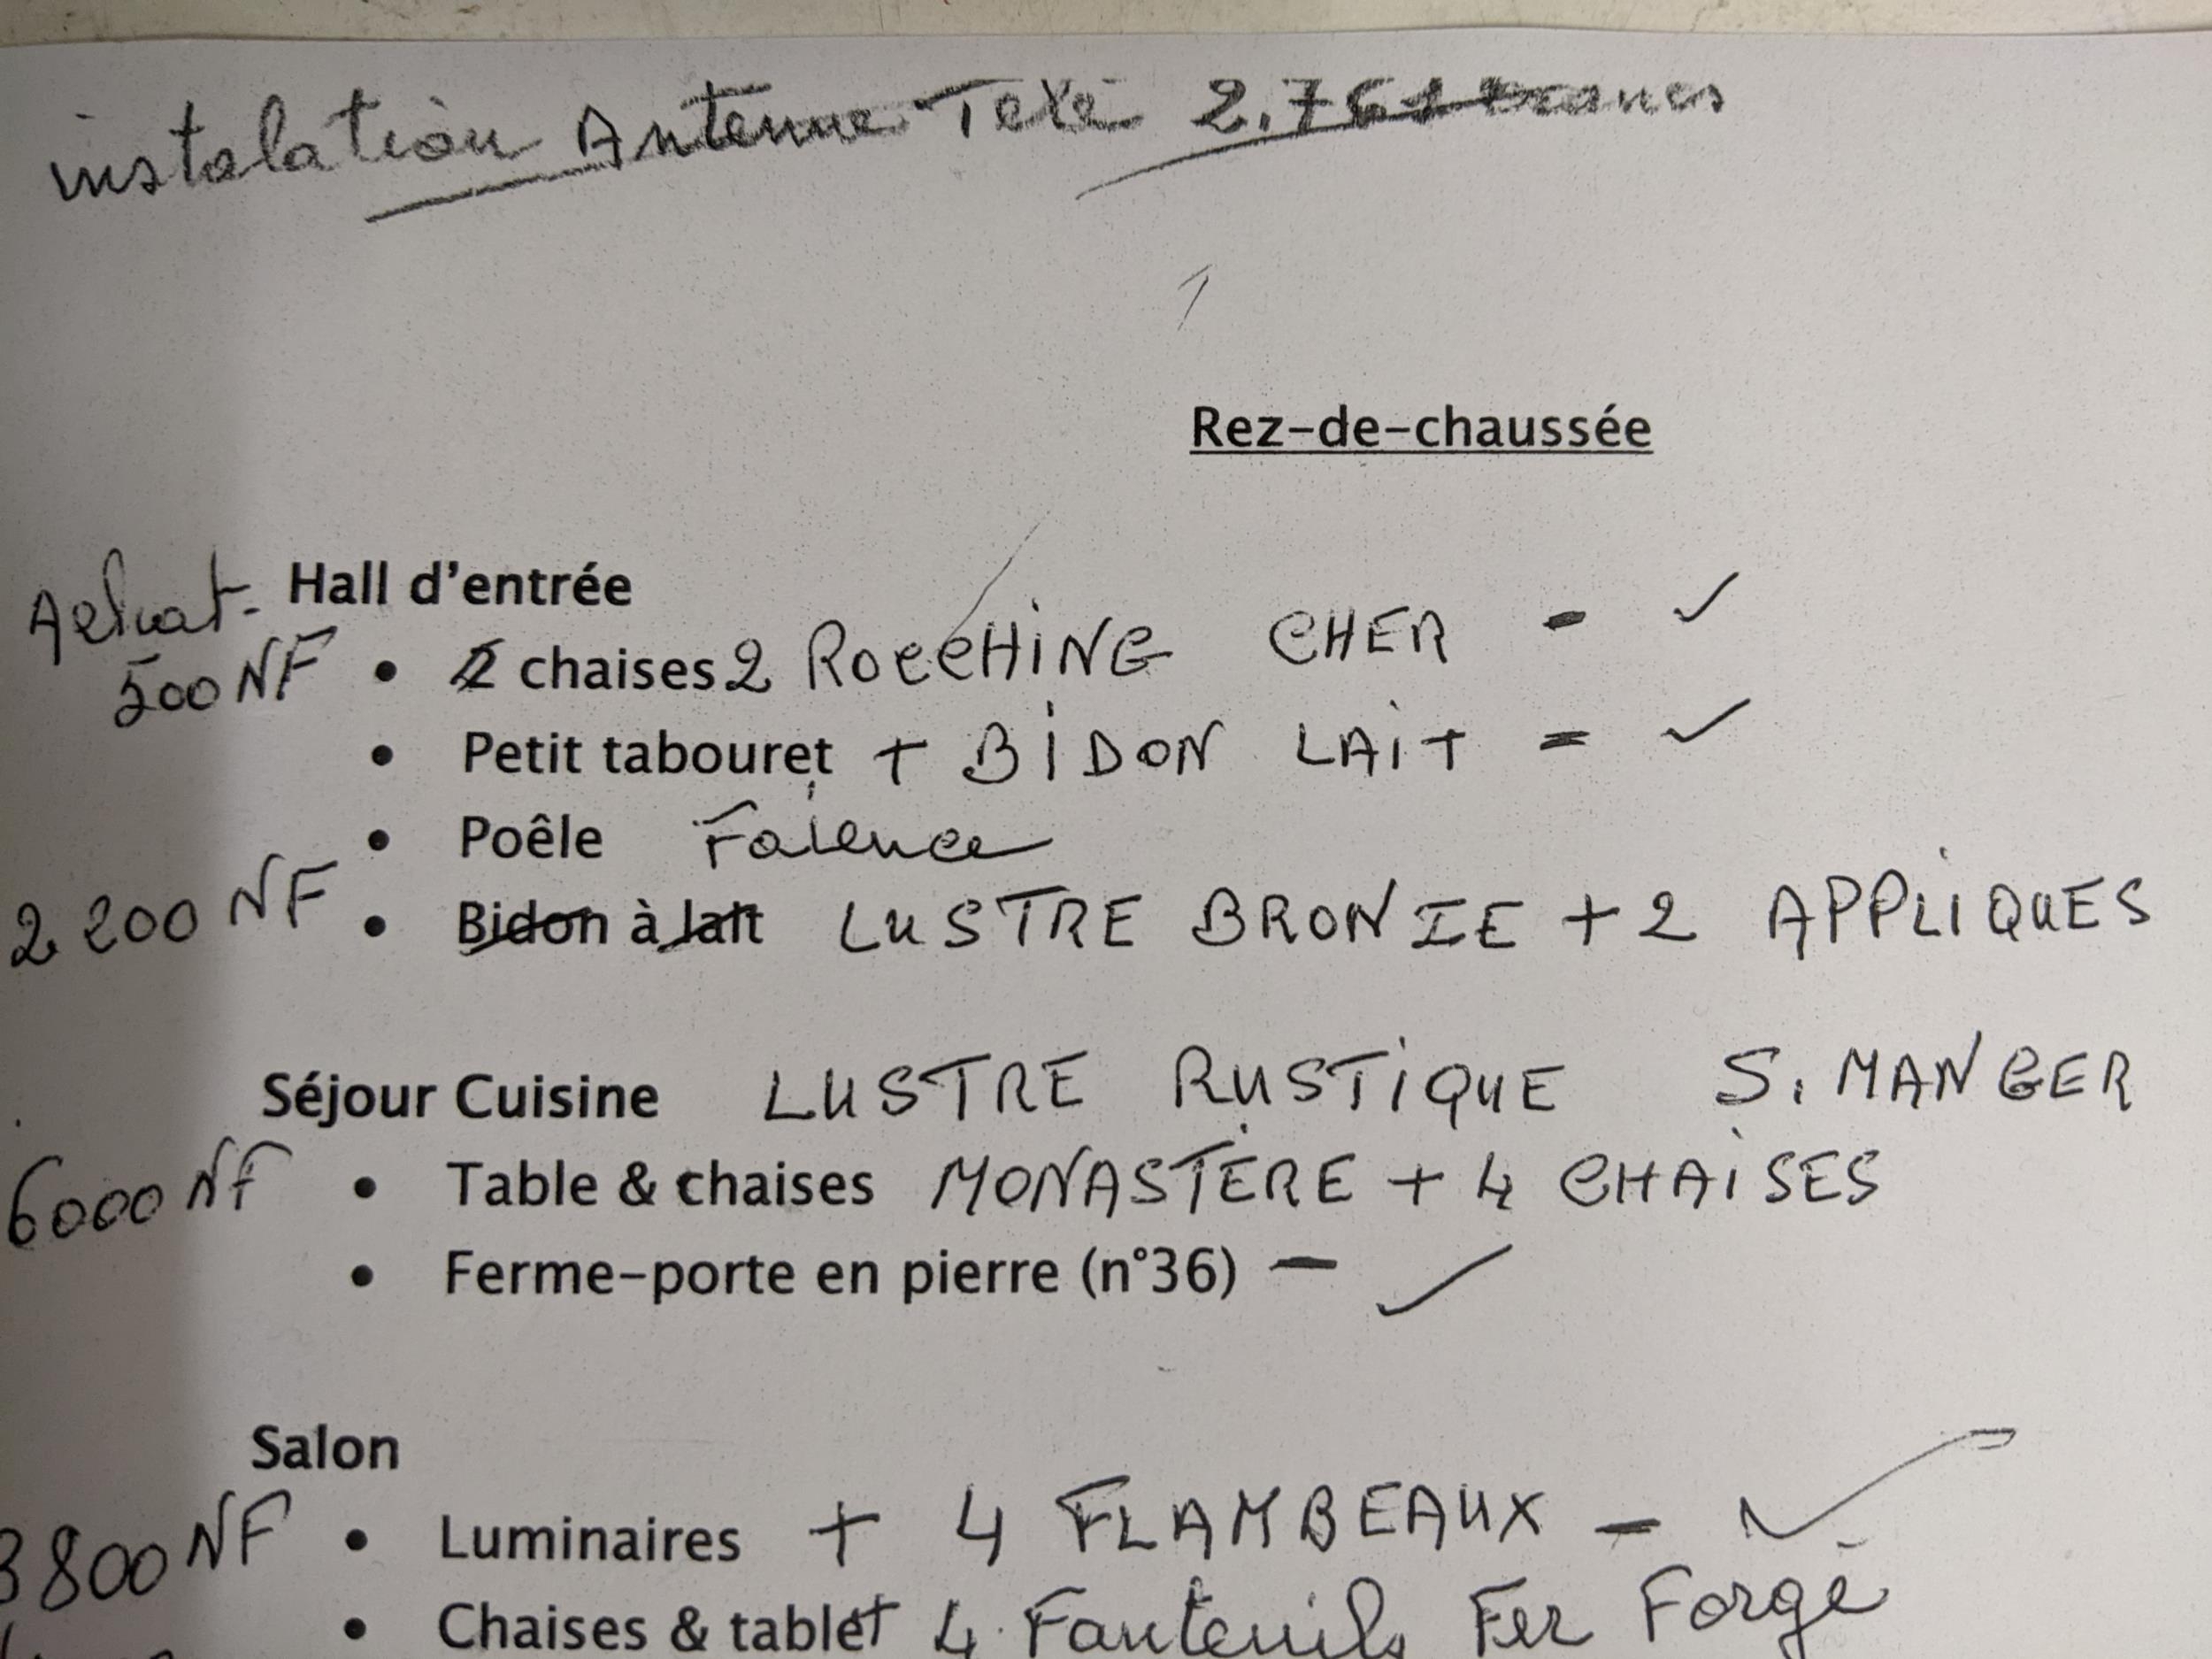 instalation Antenne Télé 2.761 Francs
Rez-de-chaussée
Achat. Hall d'entrée
500 NF • 2 chaises 2 ROCCHING CHER - ✓
• Petit tabouret + BIDON LAIT = ✓
• Poêle Faïence
2 200 NF • Bidon à lait LUSTRE BRONZE + 2 APPLIQUES
Séjour Cuisine LUSTRE RUSTIQUE S. MANGER
6000 NF • Table & chaises MONASTÈRE + 4 CHAISES
• Ferme-porte en pierre (n°36) - ✓
Salon
3800 NF • Luminaires + 4 FLAMBEAUX - ✓
• Chaises & table + 4 Fauteuils Fer Forgé